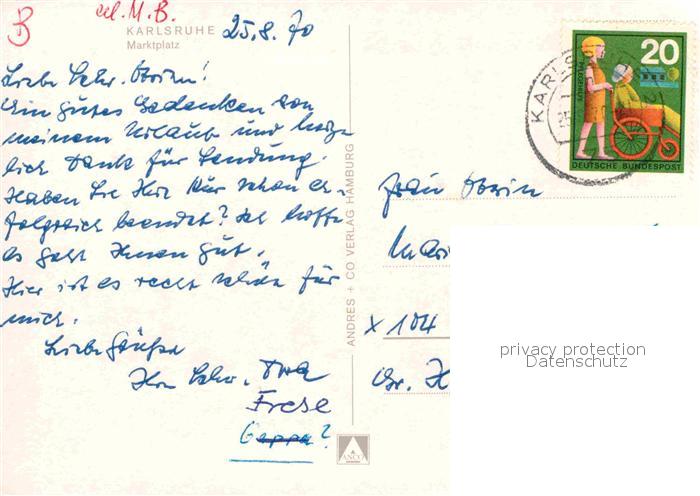 B
erl. M. B.
KARLSRUHE
Marktplatz
25.8.70
Liebe Schw. Oberin!
Ein gutes Gedenken von
meinem Urlaub und herz-
lich Dank für Sendung.
Haben Sie Ihre Kur schon er-
folgreich beendet? Ich hoffe
es geht Ihnen gut.
Hier ist es recht schön für
mich.
Liebe Grüße
Ihre Schw.
Frese
ANDRES + CO VERLAG HAMBURG
ANCO
KARLS
20
PFLEGEHILFE
DEUTSCHE BUNDESPOST
Frau Oberin
Mari
X 104
Gr. H
privacy protection
Datenschutz